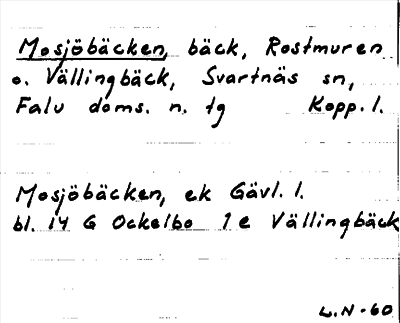 Mosjöbäcken, bäck, Rostmuren
o. Vällingbäck, Svartnäs sn,
Falu doms. n. tg Kopp. l.
Mosjöbäcken, ek Gävl. l.
bl. 14 G Ockelbo 1 e Vällingbäck
L.N-60